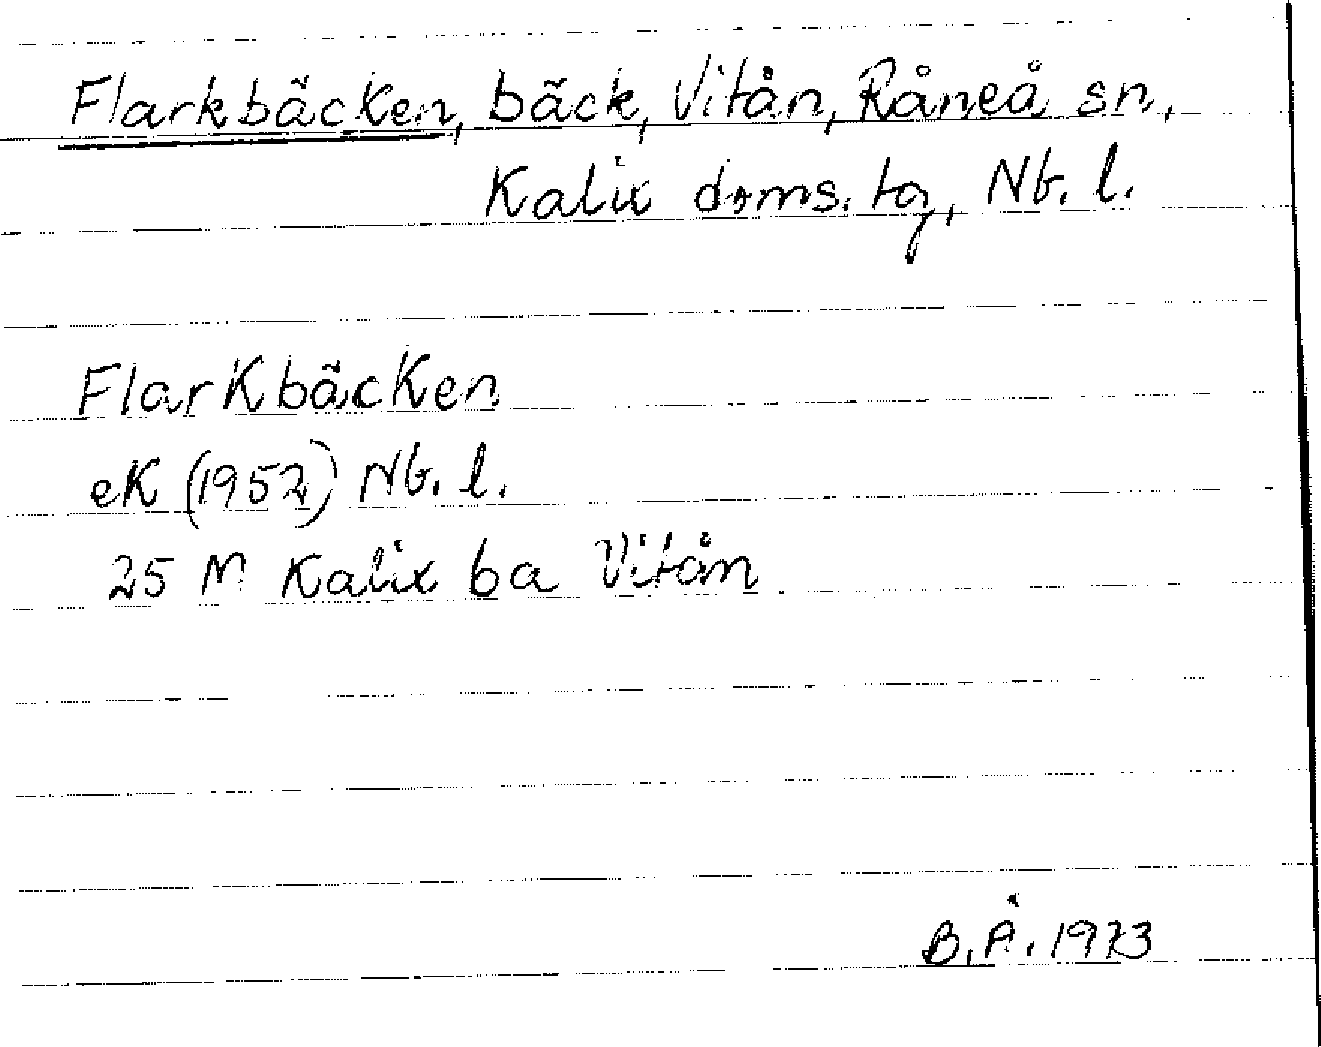 Flarkbäcken, bäck, Vitån, Råneå sn,
Kalix doms. tg, Nb. l.
Flarkbäcken
eK (1952) Nb. l.
25 M Kalix ba Vitån
B. Å. 1973